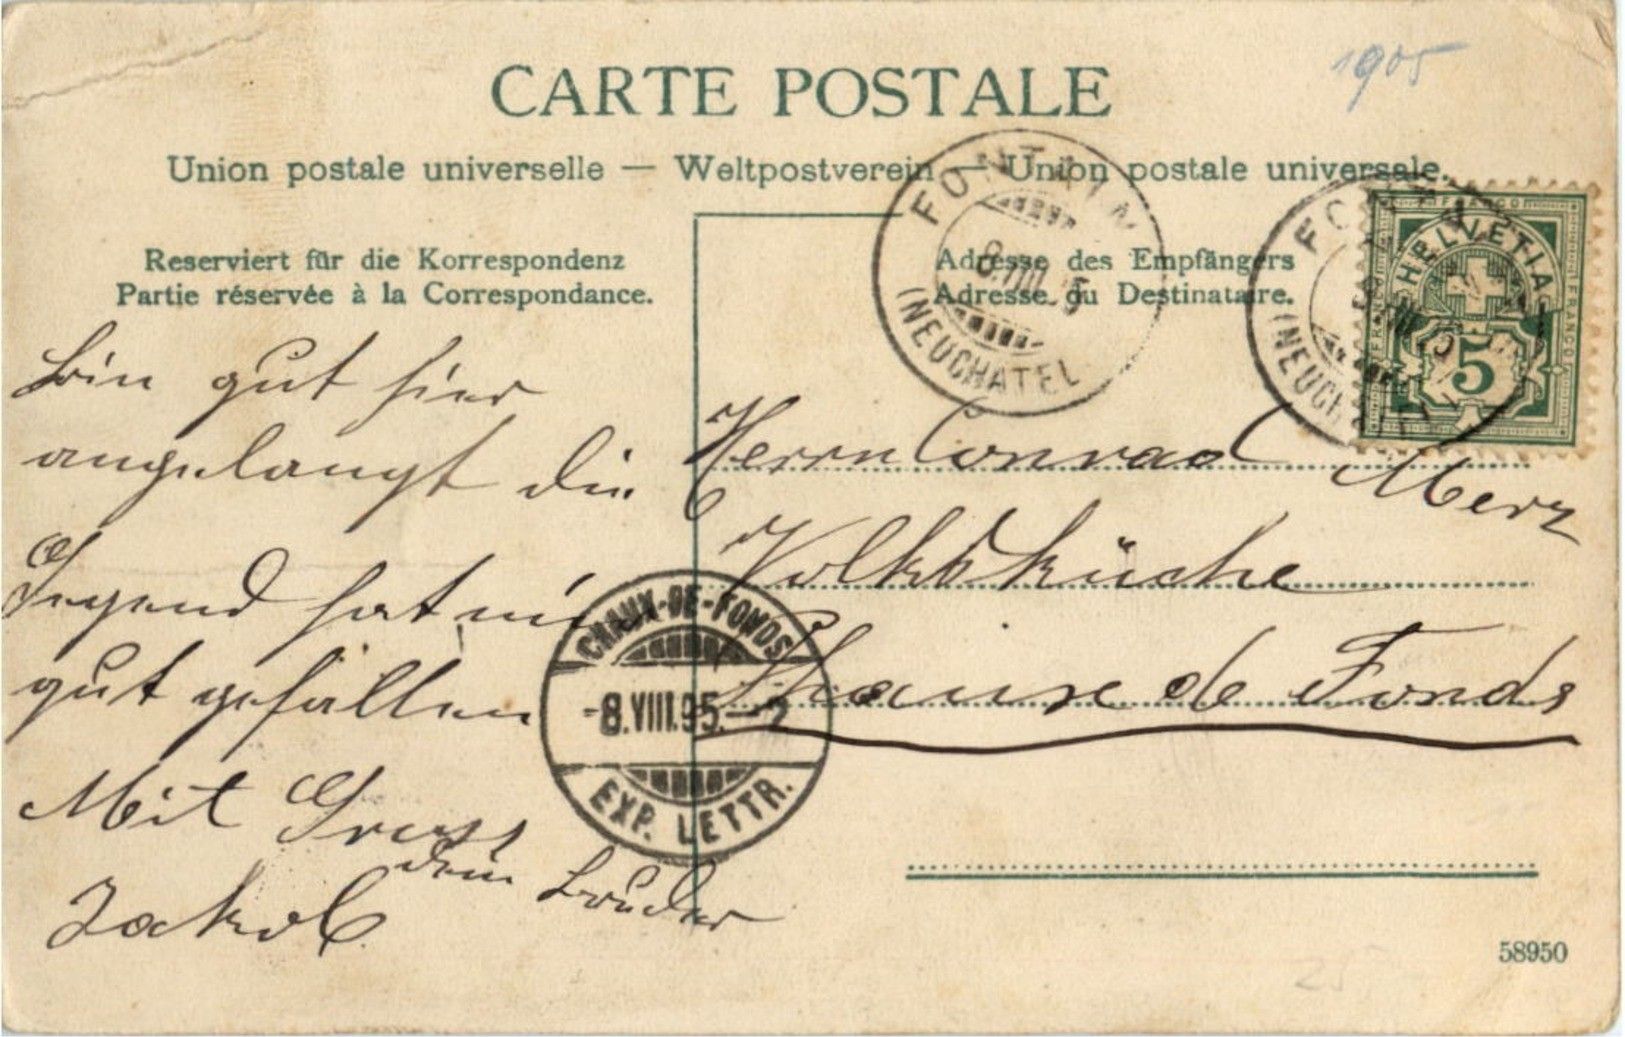 1905
CARTE POSTALE
Union postale universelle — Weltpostverein — Union postale universale.
Reserviert für die Korrespondenz
Partie réservée à la Correspondance.
Adresse des Empfängers
Adresse du Destinataire.
(NEUCHATEL
(NEUCH
FRANCO
HELVETIA
FRANCO
5
bin gut hier
angelangt die
Gegend hat mir
gut gefallen
Mit Gruss
dein bruder
Jakob
Herrn Conrad Merz
Volksküche
Chaux de Fonds
CHAUX-DE-FONDS
-8.VIII.95.-
EXP. LETTR.
58950